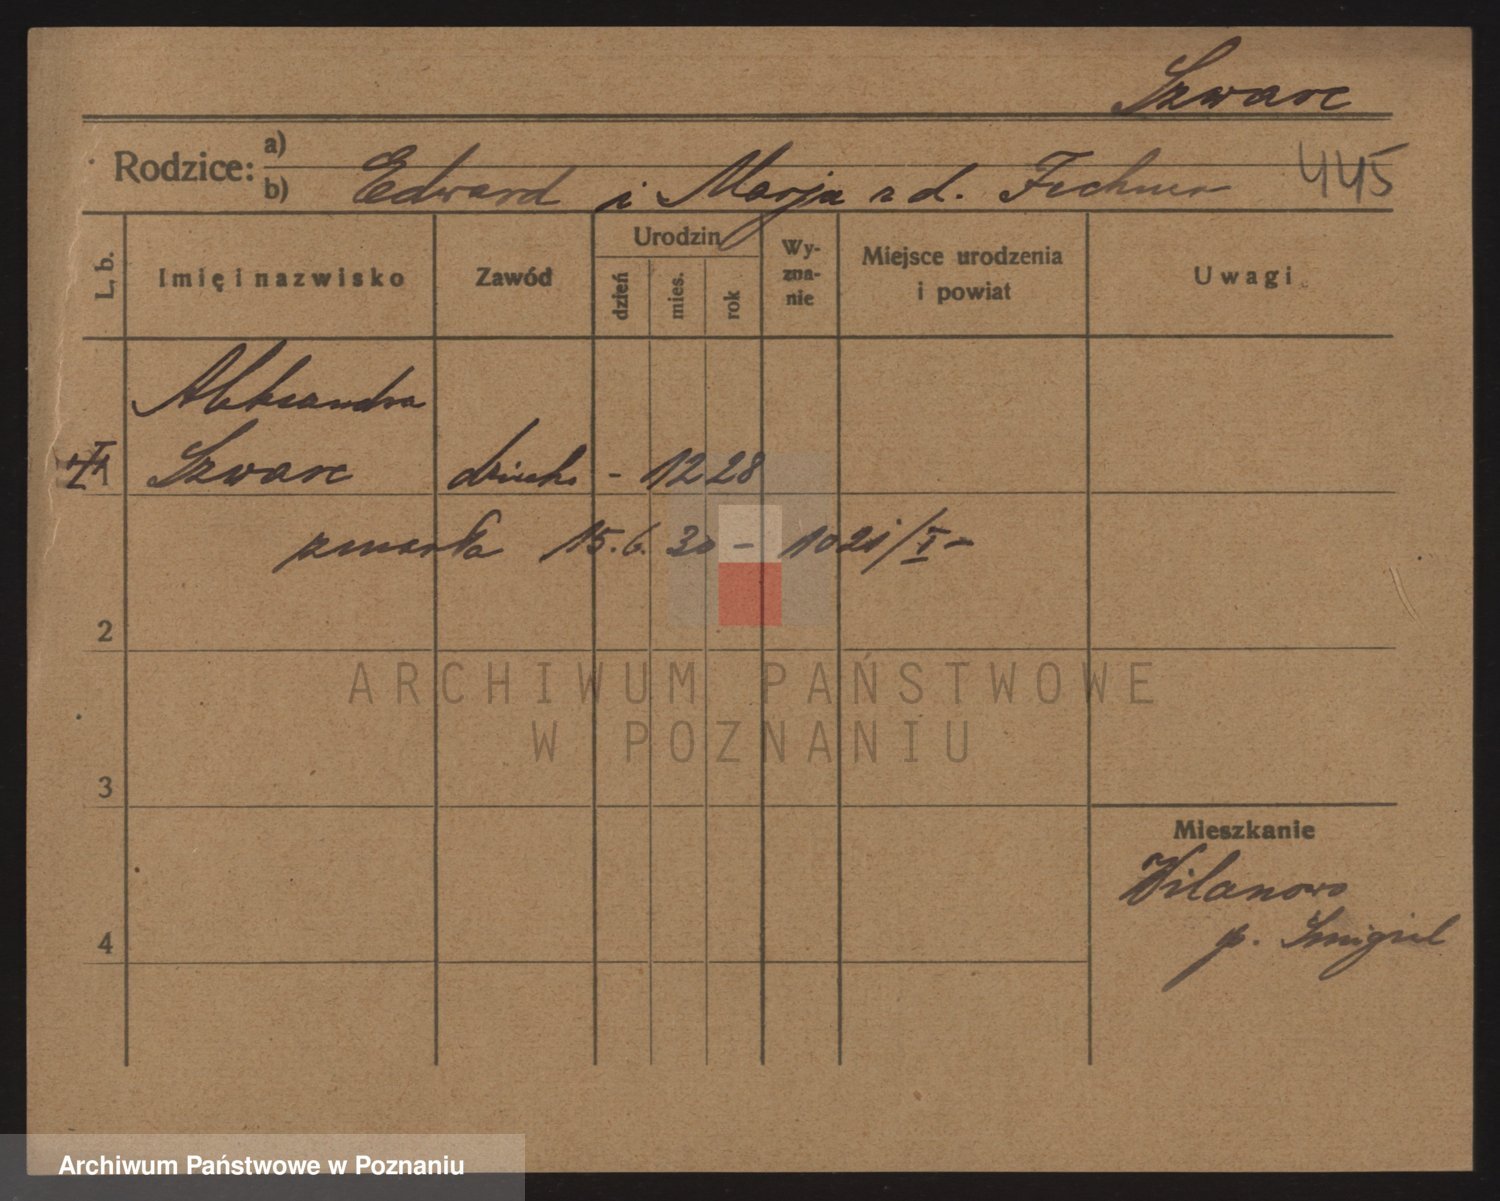 Szwarc
Rodzice: a)
b) Edward i Marja z d. Fechner 445
L. b. Imię i nazwisko Zawód Urodzin dzień mies. rok Wy-zna-nie Miejsce urodzenia i powiat Uwagi
Aleksandra
1 Szwarc dziecko - 12 28
zmarła 15.6.30 - 1021/I -
2
ARCHIWUM PAŃSTWOWE
W POZNANIU
3
Mieszkanie
Wilanowo
4 p. Śmigiel
Archiwum Państwowe w Poznaniu